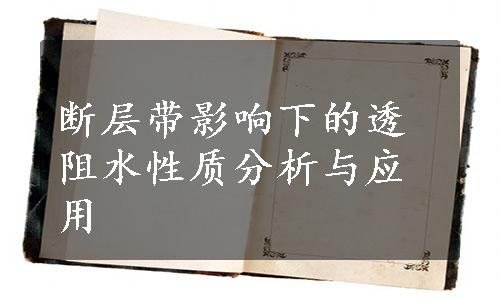 断层带影响下的透
阻水性质分析与应
用